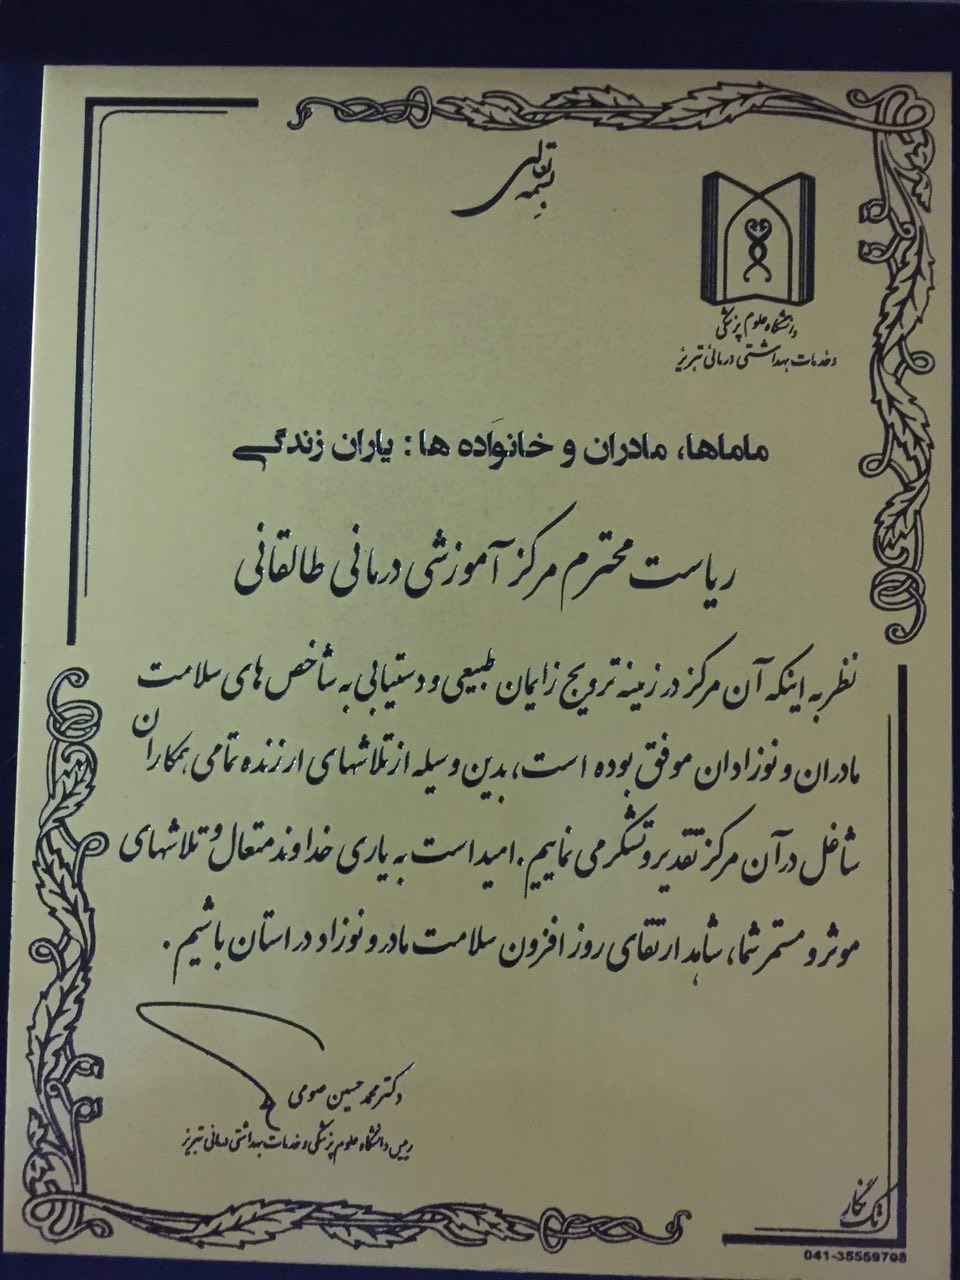 بسمه تعالی
دانشگاه علوم پزشکی
و خدمات بهداشتی درمانی تبریز
ماماها، مادران و خانواده ها: یاران زندگی
ریاست محترم مرکز آموزشی درمانی طالقانی
نظر به اینکه آن مرکز در زمینه ترویج زایمان طبیعی و دستیابی به شاخص های سلامت
مادران و نوزادان موفق بوده است، بدین وسیله از تلاشهای ارزنده تمامی همکاران
شاغل در آن مرکز تقدیر و تشکر می نماییم. امید است به یاری خداوند متعال و تلاشهای
موثر و مستمر شما، شاهد ارتقای روز افزون سلامت مادر و نوزاد در استان باشیم.
دکتر محمد حسین صومی
رییس دانشگاه علوم پزشکی و خدمات بهداشتی درمانی تبریز
تک نگار
041-35569798